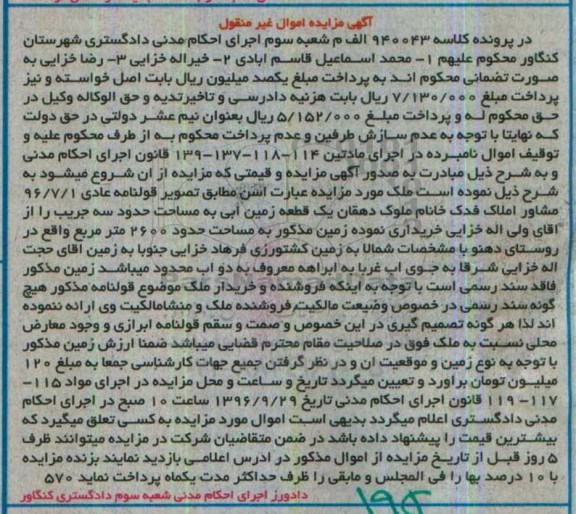 آگهی مزایده اموال غیر منقول
در پرونده کلاسه ۹۴۰۰۴۳ الف م شعبه سوم اجرای احکام مدنی دادگستری شهرستان
کنگاور محکوم علیهم ۱- محمد اسماعیل قاسم ابادی ۲- خیراله خزایی ۳- رضا خزایی به
صورت تضمانی محکوم اند به پرداخت مبلغ یکصد میلیون ریال بابت اصل خواسته و نیز
پرداخت مبلغ ۷/۱۳۰/۰۰۰ ریال بابت هزینه دادرسی و تاخیرتدیه و حق الوکاله وکیل در
حق محکوم له و پرداخت مبلغ ۵/۱۵۲/۰۰۰ ریال بعنوان نیم عشر دولتی در حق دولت
که نهایتا با توجه به عدم سازش طرفین و عدم پرداخت محکوم به از طرف محکوم علیه و
توقیف اموال نامبرده در اجرای مادتین ۱۱۴-۱۱۸-۱۳۷-۱۳۹ قانون اجرای احکام مدنی
و به شرح ذیل مبادرت به صدور آگهی مزایده و قیمتی که مزایده از ان شروع میشود به
شرح ذیل نموده است ملک مورد مزایده عبارت است مطابق تصویر قولنامه عادی ۹۶/۷/۱
مشاور املاک فدک خانم ملوک دهقان یک قطعه زمین آبی به مساحت حدود سه جریب را از
اقای ولی اله خزایی خریداری نموده زمین مذکور به مساحت حدود ۲۶۰۰ متر مربع واقع در
روستای دهنو با مشخصات شمالا به زمین کشتورزی فرهاد خزایی جنوبا به زمین اقای حجت
اله خزایی شرقا به جوی اب غربا به ابراهه معروف به دو اب محدود میباشد زمین مذکور
فاقد سند رسمی است با توجه به اینکه فروشنده و خریدار ملک موضوع قولنامه مذکور هیچ
گونه سند رسمی در خصوص وضیعت مالکیت فروشنده ملک و منشامالکیت وی ارائه ننموده
اند لذا هر گونه تصمیم گیری در این خصوص و صمت و سقم قولنامه ابرازی و وجود معارض
محلی نسبت به ملک فوق در صلاحیت مقام محترم قضایی میباشد ضمنا ارزش زمین مذکور
با توجه به نوع زمین و موقعیت ان و در نظر گرفتن جمیع جهات کارشناسی جمعا به مبلغ ۱۲۰
میلیون تومان براورد و تعیین میگردد تاریخ و ساعت و محل مزایده در اجرای مواد ۱۱۵-
۱۱۷- ۱۱۹ قانون اجرای احکام مدنی تاریخ ۱۳۹۶/۹/۲۹ ساعت ۱۰ صبح در اجرای احکام
مدنی دادگستری اعلام میگردد بدیهی است اموال مورد مزایده به کسی تعلق میگیرد که
بیشترین قیمت را پیشنهاد داده باشد در ضمن متقاضیان شرکت در مزایده میتوانند ظرف
۵ روز قبل از تاریخ مزایده از اموال مذکور در ادرس اعلامی بازدید نمایند بزنده مزایده
با ۱۰ درصد بها را فی المجلس و مابقی را ظرف حداکثر مدت یکماه پرداخت نماید ۵۷۰
دادورز اجرای احکام مدنی شعبه سوم دادگستری کنگاور